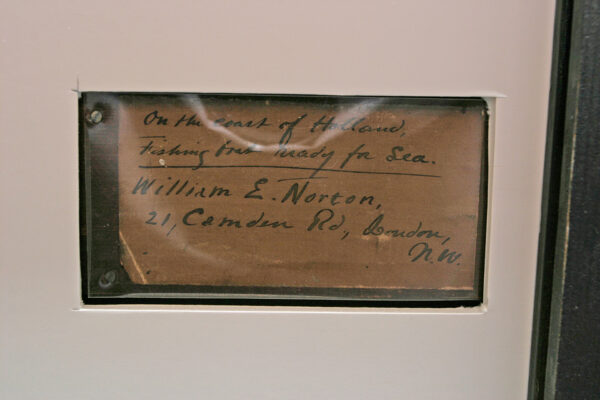 On the coast of Holland,
Fishing boat ready for Sea.
William E. Norton,
21, Camden Rd, London,
N.W.